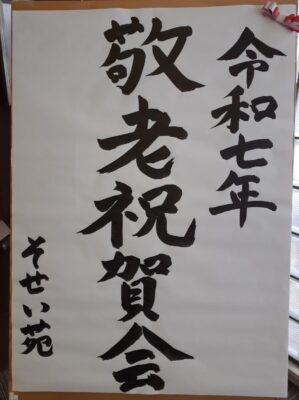 令和七年
敬老祝賀会
そせい苑